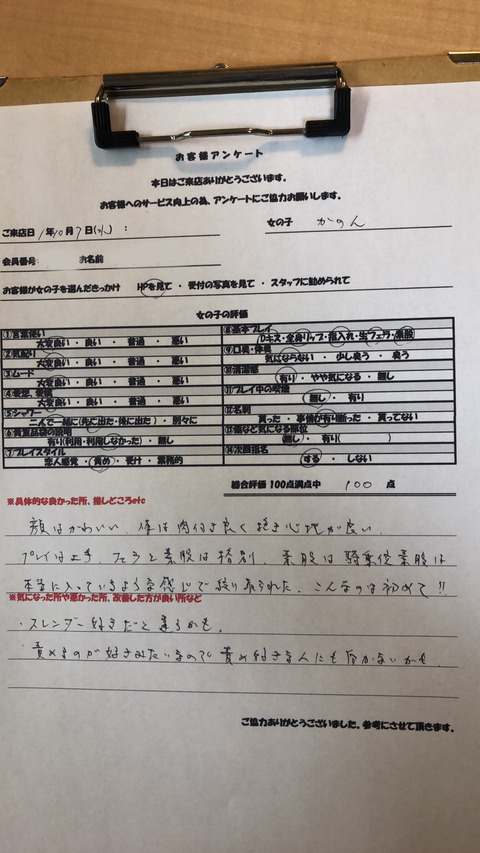 お客様アンケート
本日はご来店ありがとうございます。
お客様へのサービス向上の為、アンケートにご協力お願いします。
ご来店日 1年10月7日(水) : 女の子 かのん
会員番号: お名前
お客様が女の子を選んだきっかけ HPを見て ・ 受付の写真を見て ・ スタッフに勧められて
女の子の評価
①言葉使い
大変良い ・ 良い ・ 普通 ・ 悪い
②気配り
大変良い ・ 良い ・ 普通 ・ 悪い
③ムード
大変良い ・ 良い ・ 普通 ・ 悪い
④愛想、愛嬌
大変良い ・ 良い ・ 普通 ・ 悪い
⑤シャワー
二人で一緒に(先に出た・後に出た) ・ 別々に
⑥貴重品袋の説明
有り(利用・利用しなかった) ・ 無し
⑦プレイスタイル
恋人感覚 ・ 責め ・ 受け ・ 業務的
⑧基本プレイ
Dキス・全身リップ・指入れ・生フェラ・素股
⑨口臭・体臭
気にならない ・ 少し臭う ・ 臭う
⑩清潔感
有り ・ やや気になる ・ 無し
⑪プレイ中の喫煙
無し ・ 有り
⑫名刺
貰った ・ 事情が有り断った ・ 貰ってない
⑬傷など気になる部位
無し ・ 有り( )
⑭次回指名
する ・ しない
総合評価 100点満点中 100 点
※具体的な良かった所、推しどころetc
顔はかわいい、体は肉付き良く抱き心地が良い。
プレイは上手、フェラと素股は格別、素股は騎乗位素股は
本当に入っているような感じで絞り取られた、こんなのは初めて!!
※気になった所や悪かった所、改善した方が良い所など
・スレンダー好きだと違うかも。
・責めるのが好きみたいなので責め好きな人にも向かないかも。
ご協力ありがとうございました、参考にさせて頂きます。